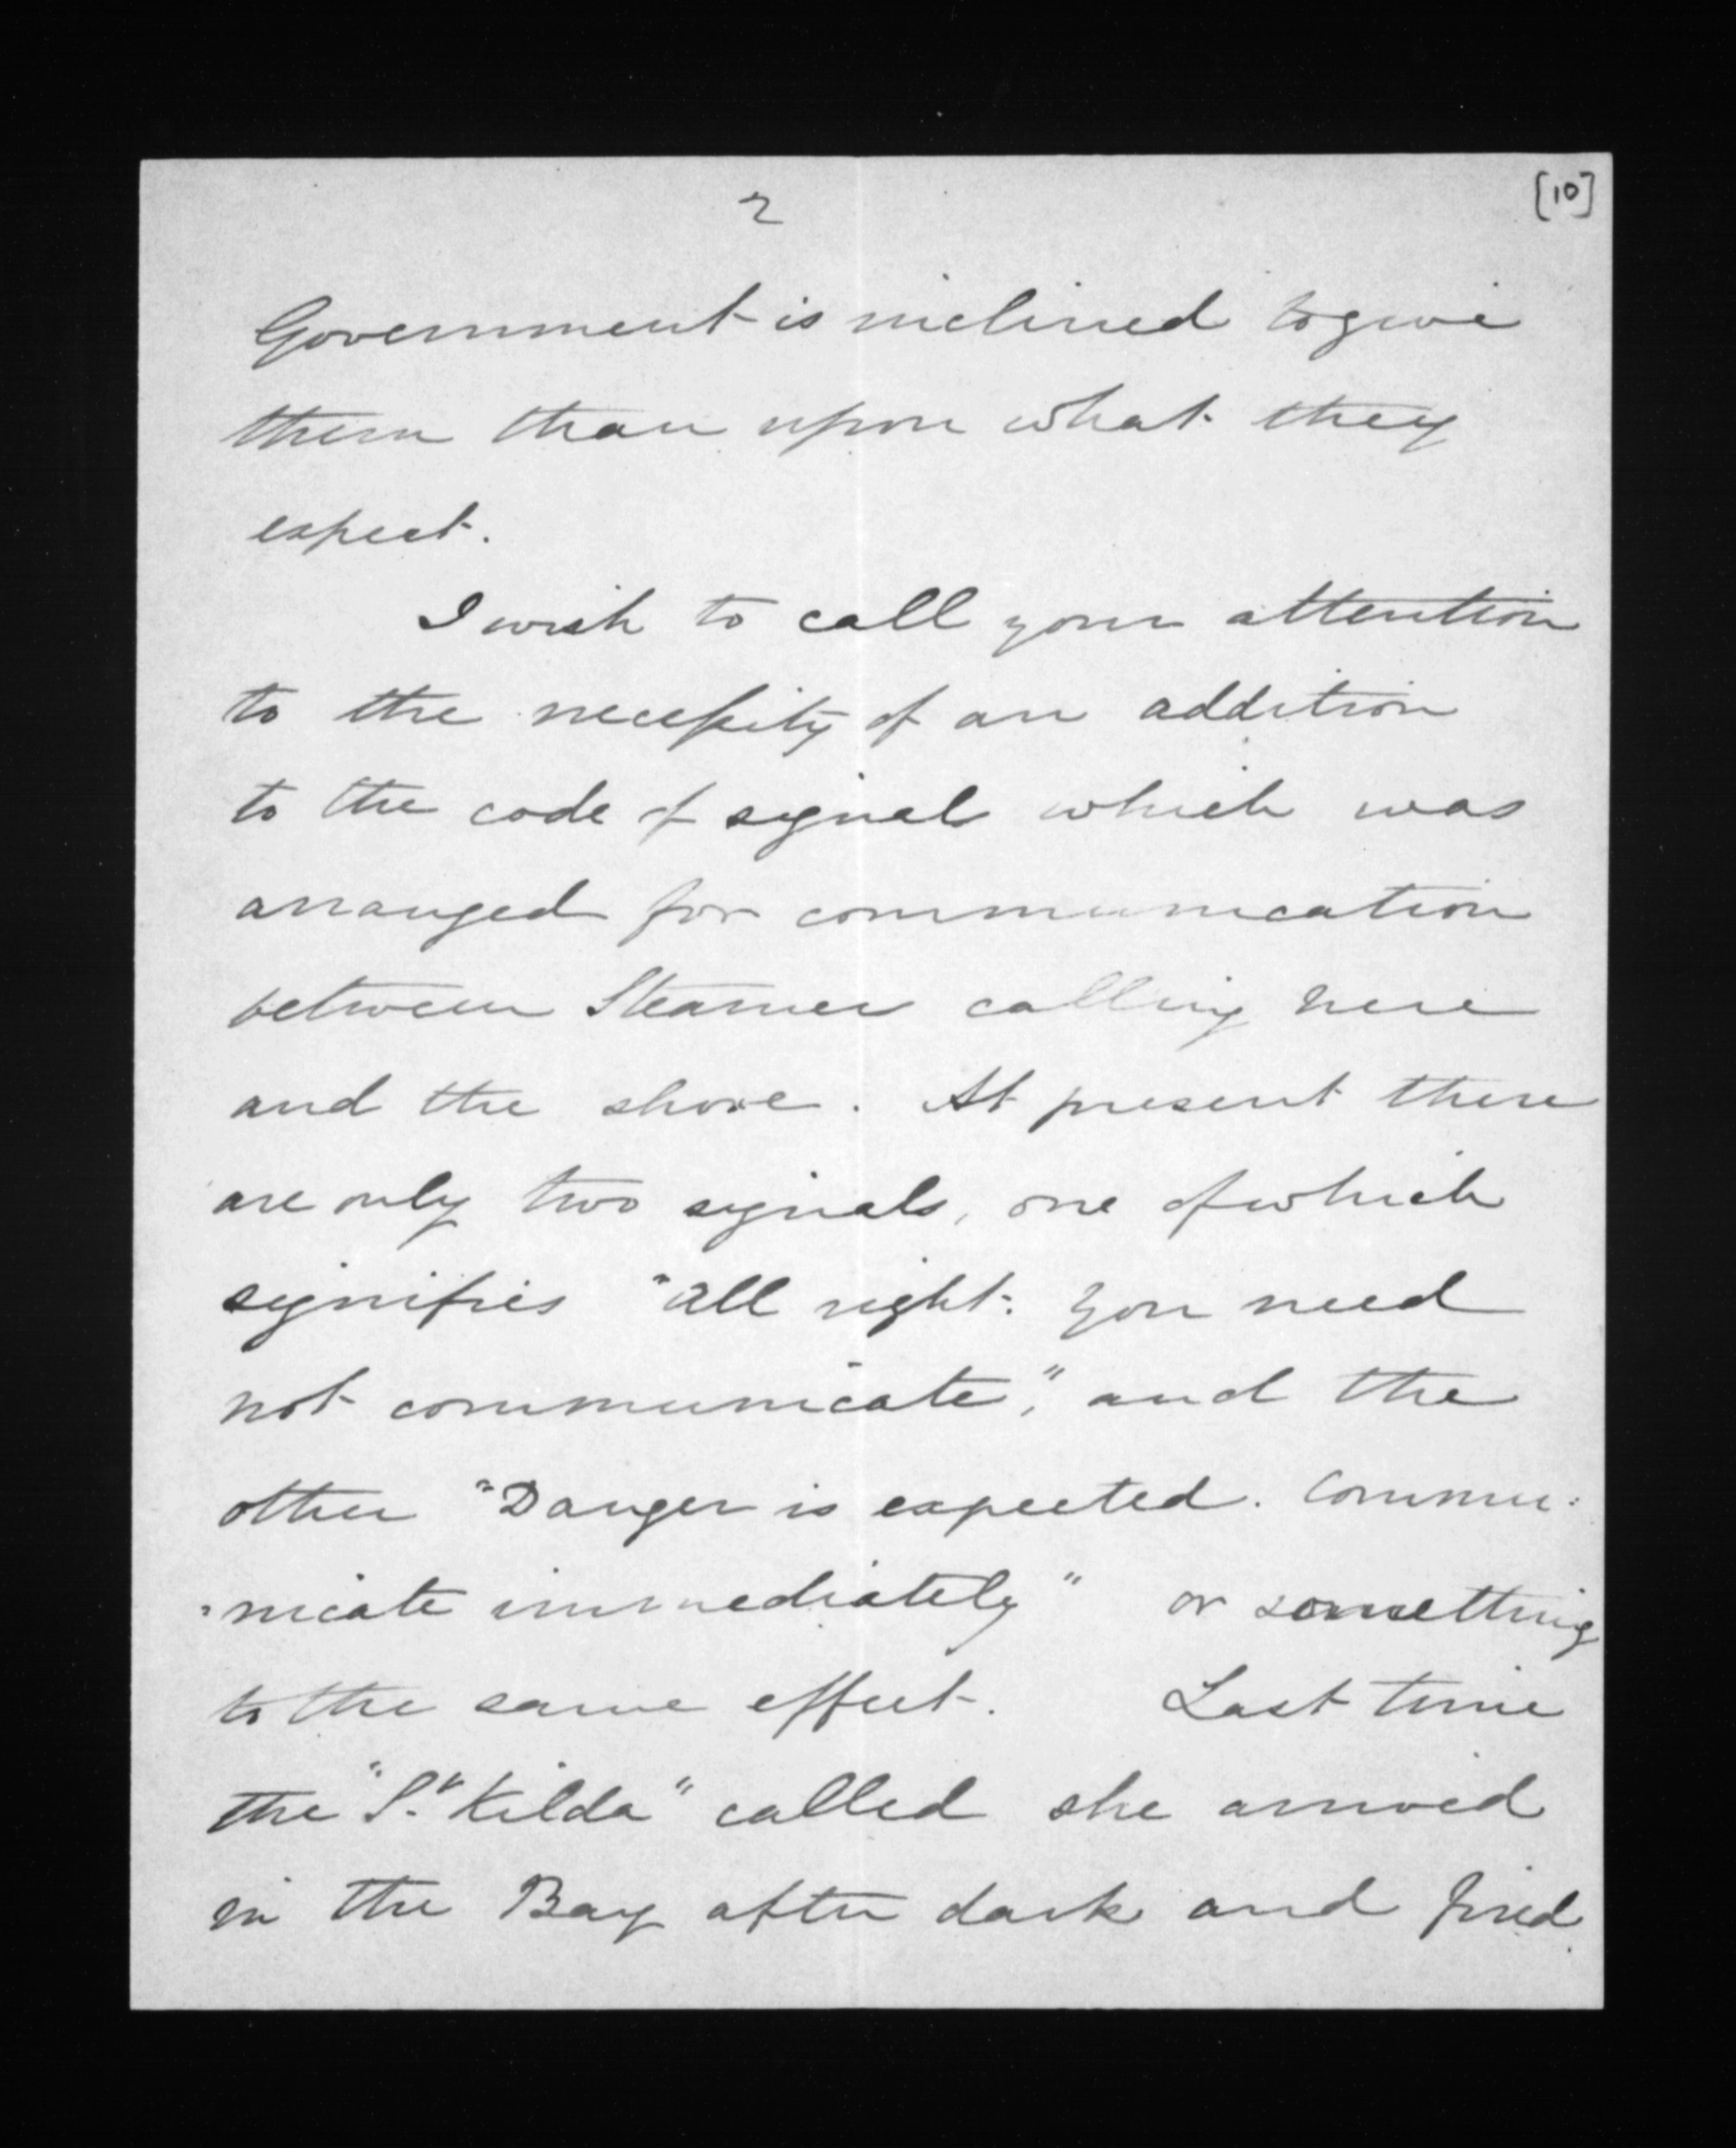 2
[10]
Government is inclined to give
them than upon what they
expect.
I wish to call your attention
to the necessity of an addition
to the code of signals which was
arranged for communication
between Steamer calling here
and the shore. At present there
are only two signals, one of which
signifies "All right: you need
not communicate," and the
other "Danger is expected. Commu:
:nicate immediately" or something
to the same effect. Last time
the "St. Kilda" called she arrived
in the Bay after dark and fired